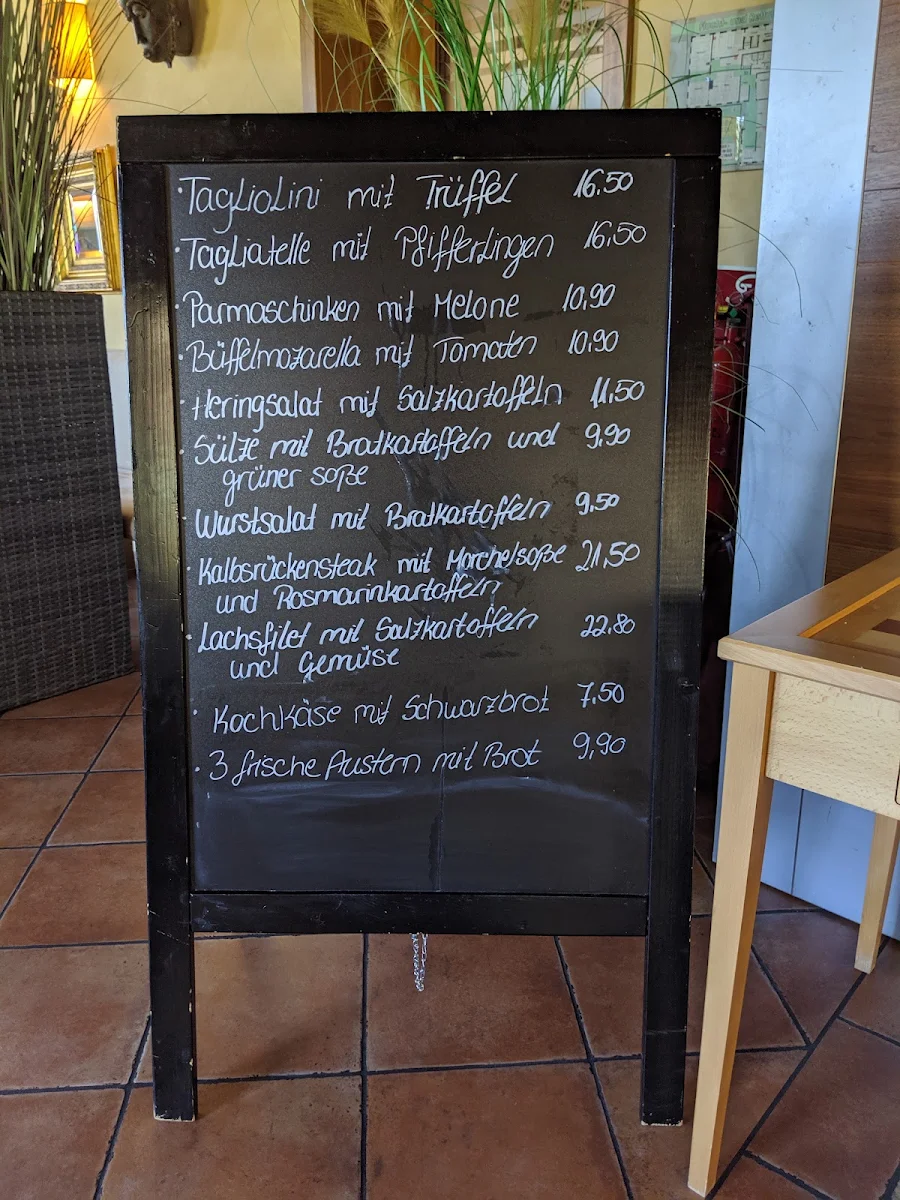 ·Tagliolini mit Trüffel 16,50
·Tagliatelle mit Pfifferlingen 16,50
·Parmaschinken mit Melone 10,90
·Büffelmozarella mit Tomaten 10,90
·Heringsalat mit Salzkartoffeln 11,50
·Sülze mit Bratkartoffeln und 9,90
grüner soße
·Wurstsalat mit Bratkartoffeln 9,50
·Kalbsrückensteak mit Morchelsoße 21,50
und Rosmarinkartoffeln
·Lachsfilet mit Salzkartoffeln 22,80
und Gemüse
·Kochkäse mit Schwarzbrot 7,50
·3 frische Austern mit Brot 9,90